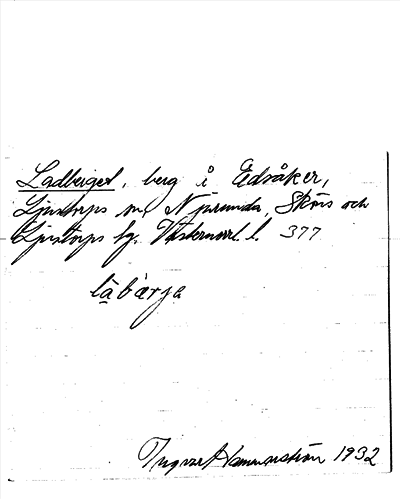 Ladberget, berg i Edsåker,
Ljustorps sn, Njurunda, Sköns och
Ljustorps tg. Västernorrl. l. 377
låbærja
Ingvar Hammarström 1932